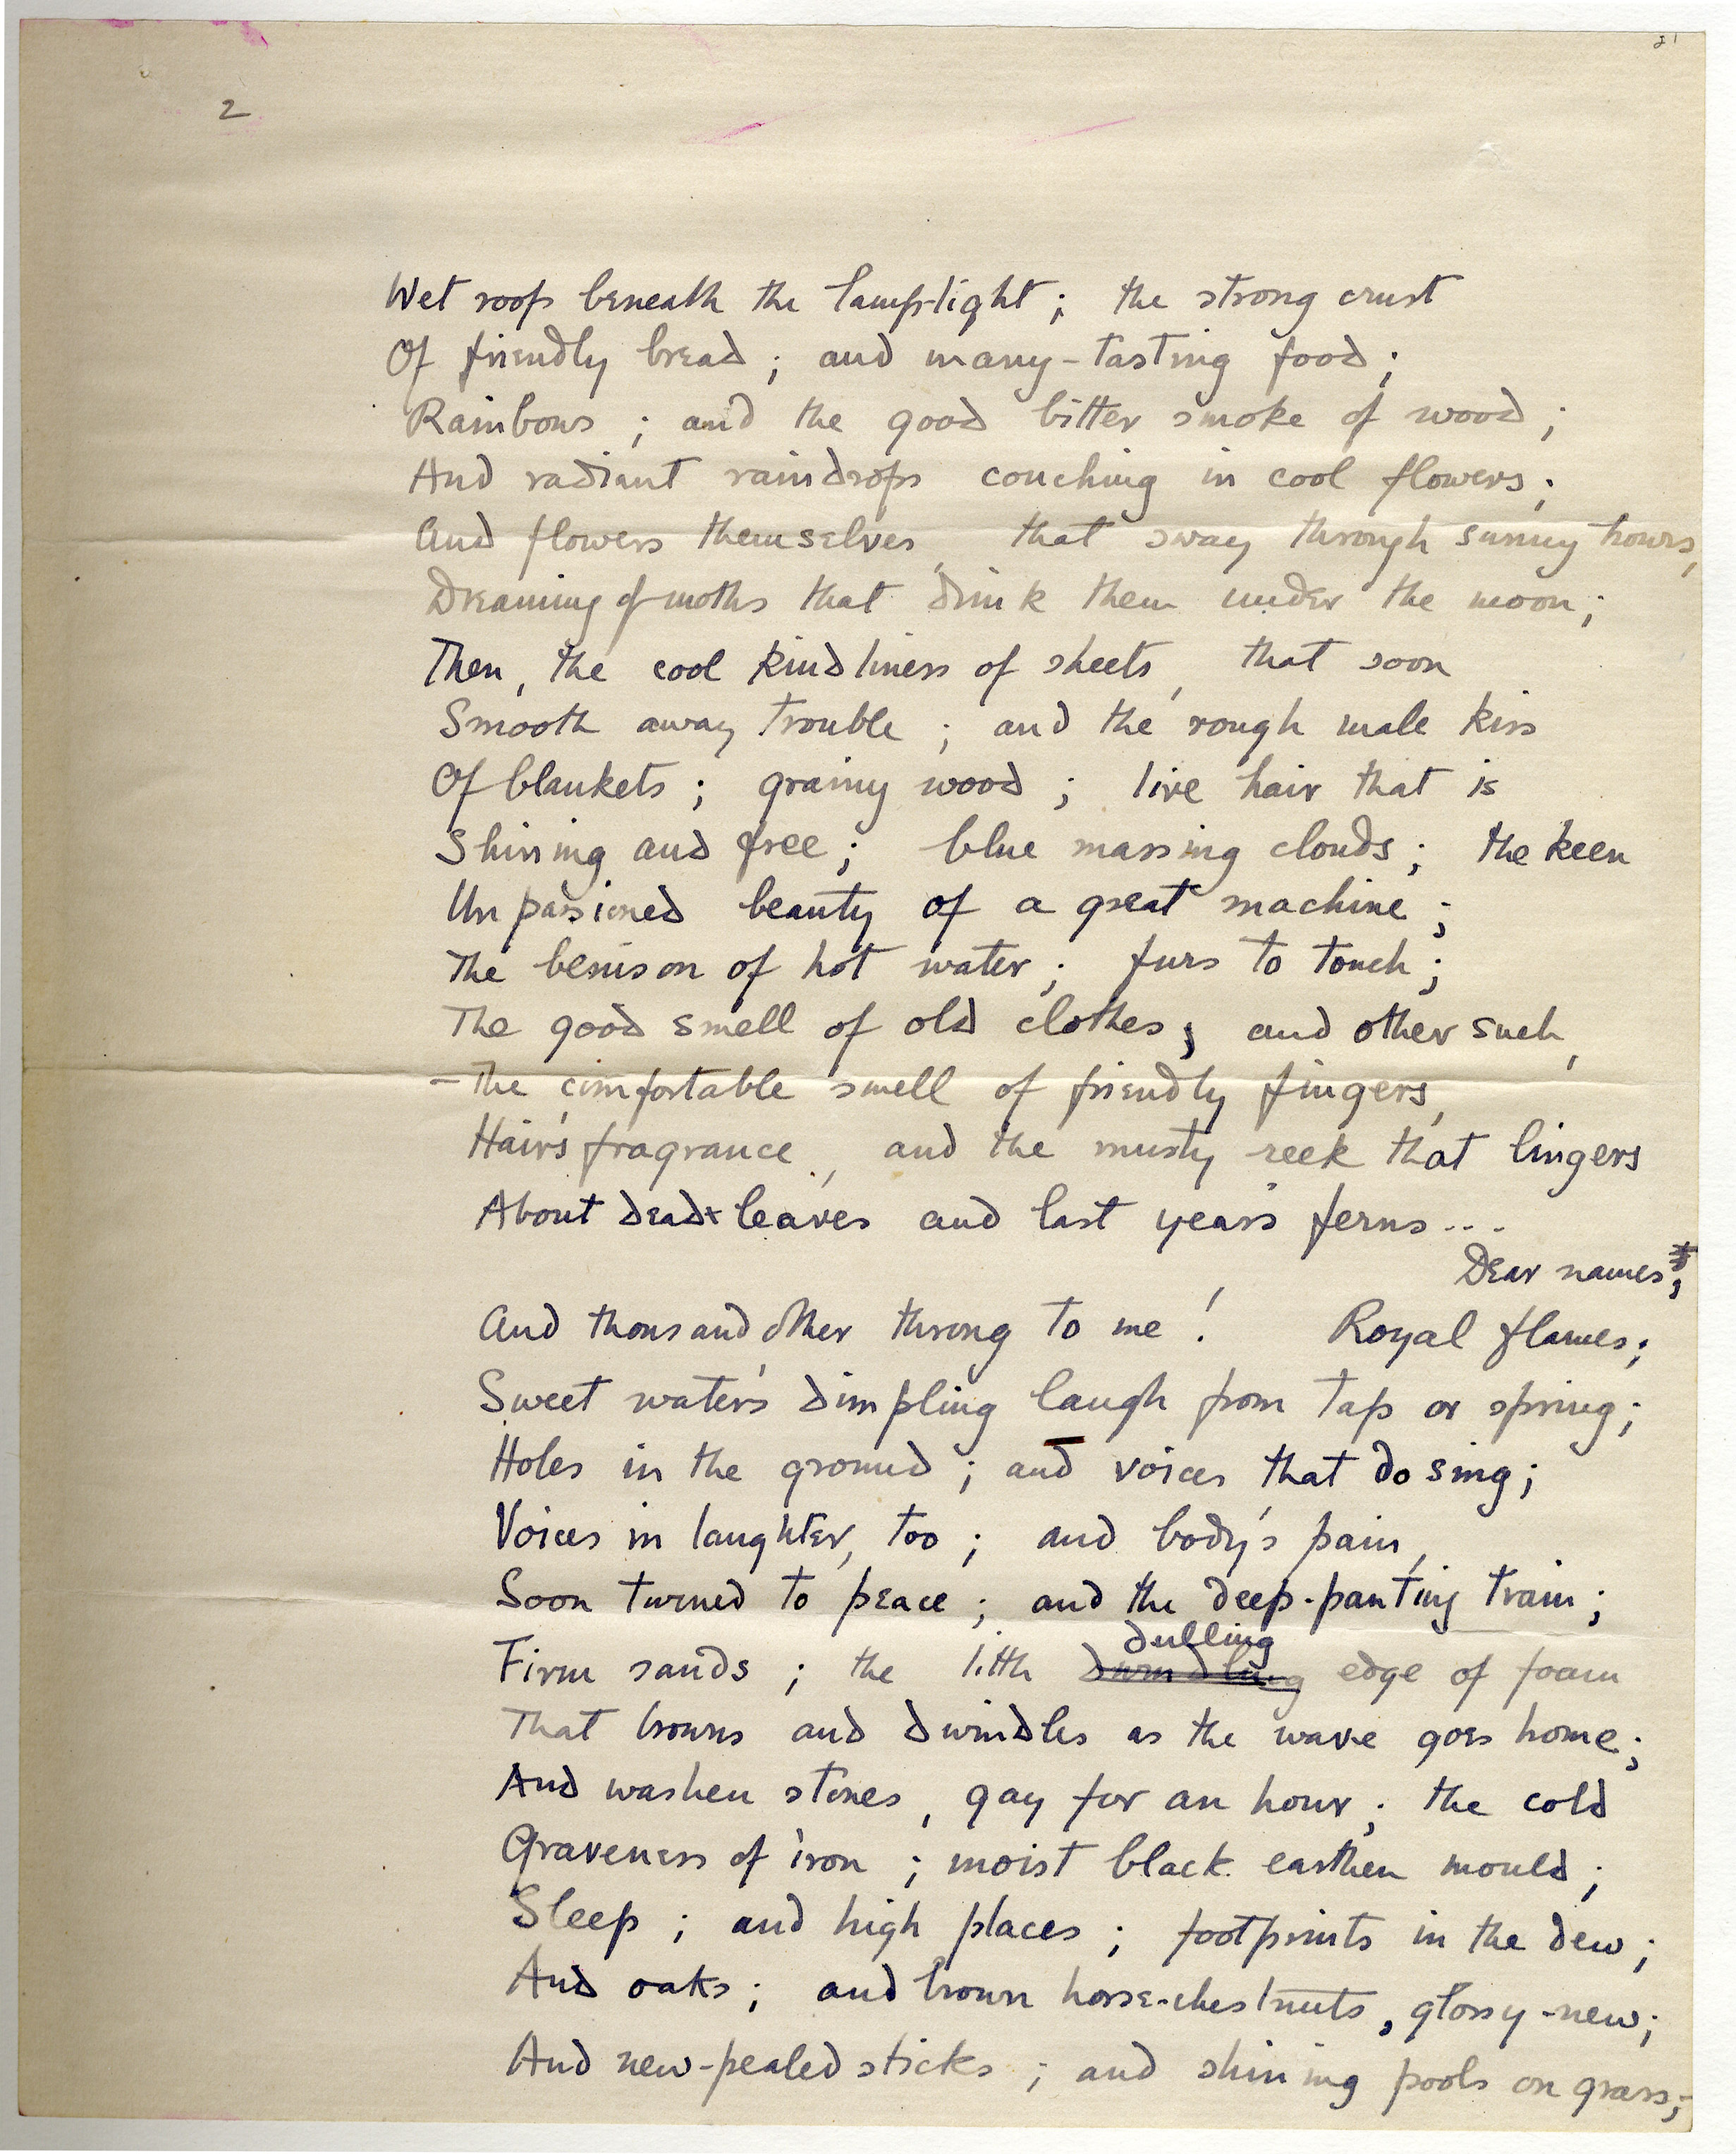 2
Wet roofs beneath the lamp-light; the strong crust
Of friendly bread; and many-tasting food;
Rainbows; and the good bitter smoke of wood;
And radiant raindrops couching in cool flowers;
And flowers themselves, that sway through sunny hours,
Dreaming of moths that drink them under the moon;
Then, the cool kindliness of sheets, that soon
Smooth away trouble; and the rough male kiss
Of blankets; grainy wood; live hair that is
Shining and free; blue massing clouds; the keen
Unpassioned beauty of a great machine;
The benison of hot water; furs to touch;
The good smell of old clothes; and other such,
—The comfortable smell of friendly fingers,
Hair's fragrance, and the musty reek that lingers
About dead leaves and last year's ferns...
Dear names;
And thousand other throng to me! Royal flames;
Sweet water's dimpling laugh from tap or spring;
Holes in the ground; and voices that do sing;
Voices in laughter, too; and body's pain,
Soon turned to peace; and the deep-panting train;
dulling
Firm sands; the little dwindling edge of foam
That browns and dwindles as the wave goes home;
And washen stones, gay for an hour; the cold
Graveness of iron; moist black earthen mould;
Sleep; and high places; footprints in the dew;
And oaks; and brown horse-chestnuts, glossy-new;
And new-pealed sticks; and shining pools on grass;—